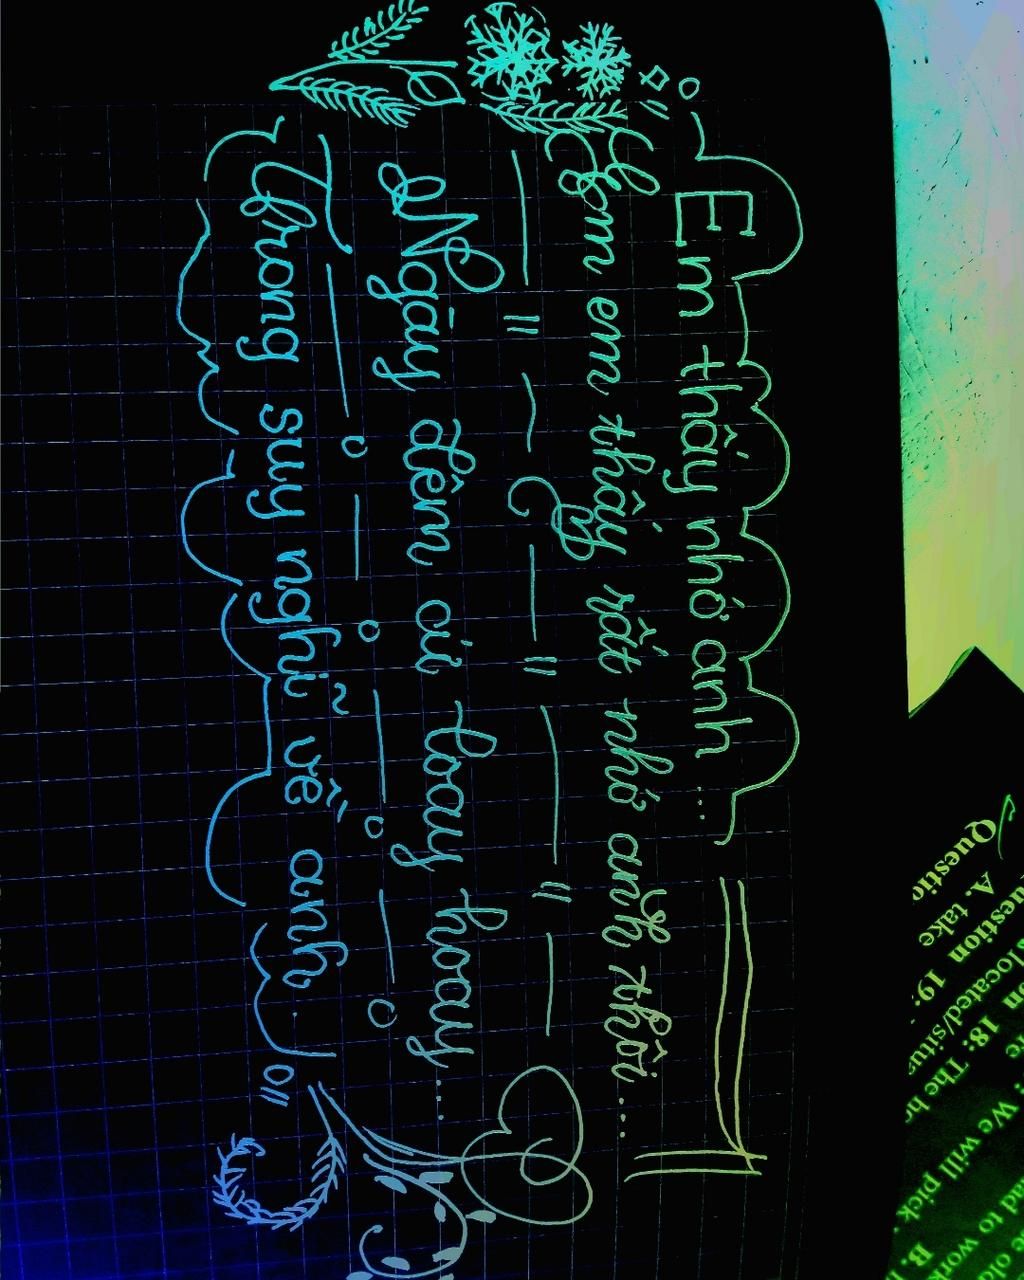 Em thấy nhớ anh...
Em em thấy rất nhớ anh thôi...
Ngày đêm cứ loay hoay...
Trong suy nghĩ về anh.
Question 18: The ho
located/situa
Question 19:
A. take
B.
We will pick
had to work